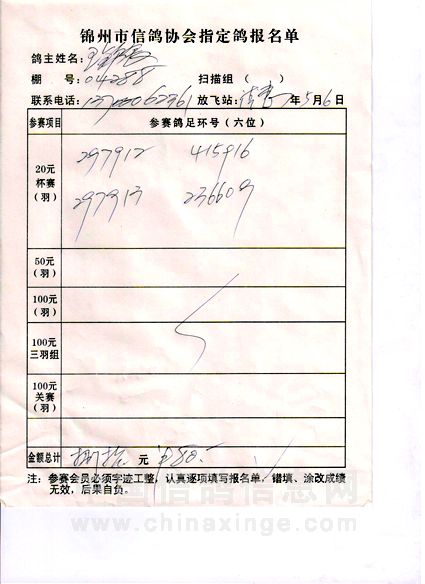 锦州市信鸽协会指定鸽报名单
鸽主姓名：
棚 号：04288 扫描组（ ）
联系电话： 放飞站： 年5月6日
参赛项目 参赛鸽足环号（六位）
20元 杯赛 （羽）
297912 415916
297913 236609
50元 （羽）
100元 （羽）
100元 三羽组
100元 关赛 （羽）
金额总计 捌拾 元 80.
注：参赛会员必须字迹工整，认真逐项填写报名单，错填、涂改成绩
无效，后果自负。
中国信鸽信息网
www.chinaxinge.com